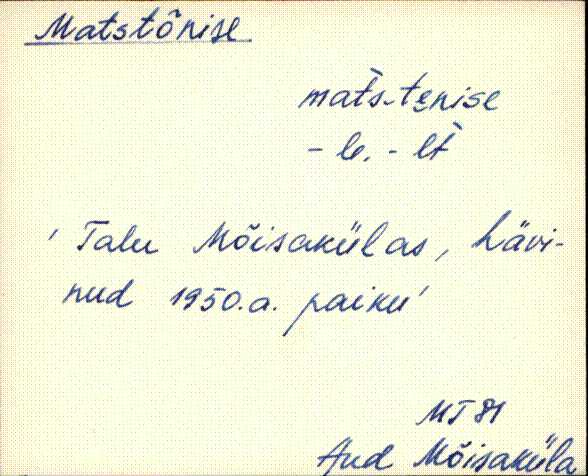 Matstõnise
mat̀s-tɛnise
- le. - lt̀
' Talu Mõisakülas, hävi-
nud 1950.a. paiku'
MT 81
Aud Mõisaküla